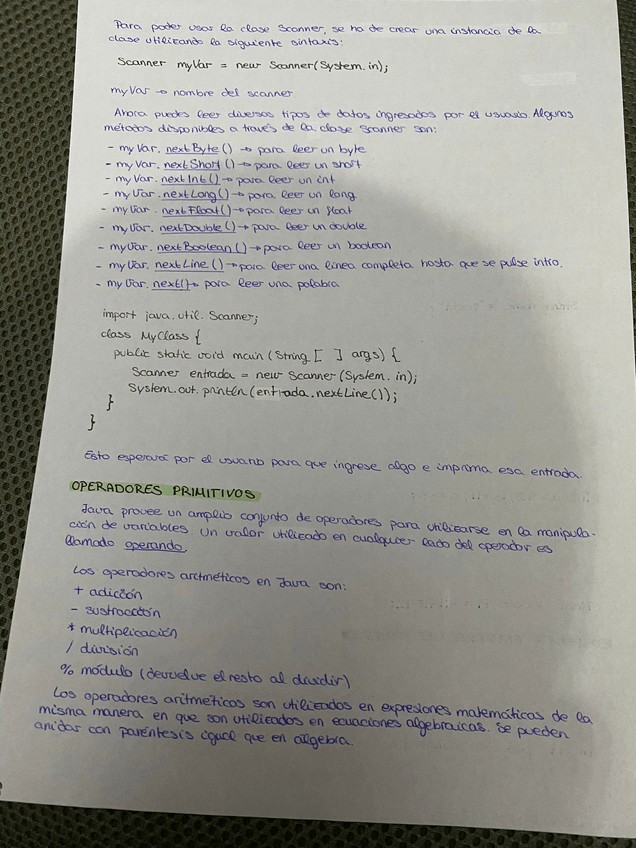 Para poder usar la clase Scanner, se ha de crear una instancia de la
clase utilizando la siguiente sintaxis:
Scanner myVar = new Scanner(System.in);
myVar → nombre del scanner
Ahora puedes leer diversos tipos de datos ingresados por el usuario. Algunos
métodos disponibles a través de la clase Scanner son:
- myVar.nextByte() → para leer un byte
- myVar.nextShort() → para leer un short
- myVar.nextInt() → para leer un int
- myVar.nextLong() → para leer un long
- myVar.nextFloat() → para leer un float
- myVar.nextDouble() → para leer un double
- myVar.nextBoolean() → para leer un boolean
- myVar.nextLine() → para leer una línea completa hasta que se pulse intro.
- myVar.next() → para leer una palabra
import java.util.Scanner;
class MyClass {
public static void main (String [ ] args) {
Scanner entrada = new Scanner(System.in);
System.out.println(entrada.nextLine());
}
}
Esto esperará por el usuario para que ingrese algo e imprima esa entrada.
OPERADORES PRIMITIVOS
Java provee un amplio conjunto de operadores para utilizarse en la manipula-
ción de variables. Un valor utilizado en cualquier lado del operador es
llamado operando.
Los operadores aritméticos en Java son:
+ adicción
- sustracción
* multiplicación
/ división
% módulo (devuelve el resto al dividir)
Los operadores aritméticos son utilizados en expresiones matemáticas de la
misma manera en que son utilizados en ecuaciones algebraicas. Se pueden
anidar con paréntesis igual que en álgebra.